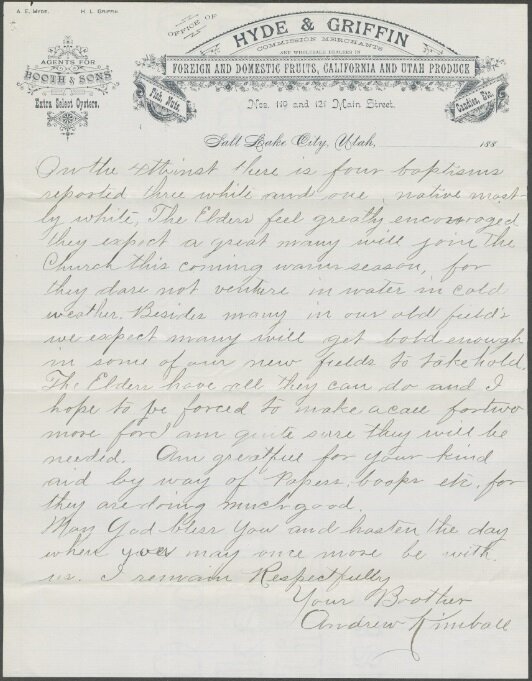 A. E. Hyde. H. L. Griffin.
OFFICE OF
HYDE & GRIFFIN
COMMISSION MERCHANTS
AND WHOLESALE DEALERS IN
FOREIGN AND DOMESTIC FRUITS, CALIFORNIA AND UTAH PRODUCE
AGENTS FOR
BOOTH & SONS
Extra Select Oysters.
Fish, Nuts,
Candies, Etc.
Nos. 119 and 121 Main Street.
Salt Lake City, Utah, 188
On the 4th inst there is four baptisms
reported three white and one native most-
ly white, The Elders feel greatly encouraged
they expect a great many will join the
Church this coming warm season, for
they dare not venture in water in cold
weather. Besides many in our old fields
we expect many will get bold enough
in some of our new fields to take hold,
The Elders have all they can do and I
hope to be forced to make a call for two
more for I am quite sure they will be
needed. Am greatfull for your kind
aid by way of Papers, boops etc, for
they are doing much good.
May God bless you and hasten the day
when you may once more be with
us. I remain Respectfully
Your Brother
Andrew Kimball